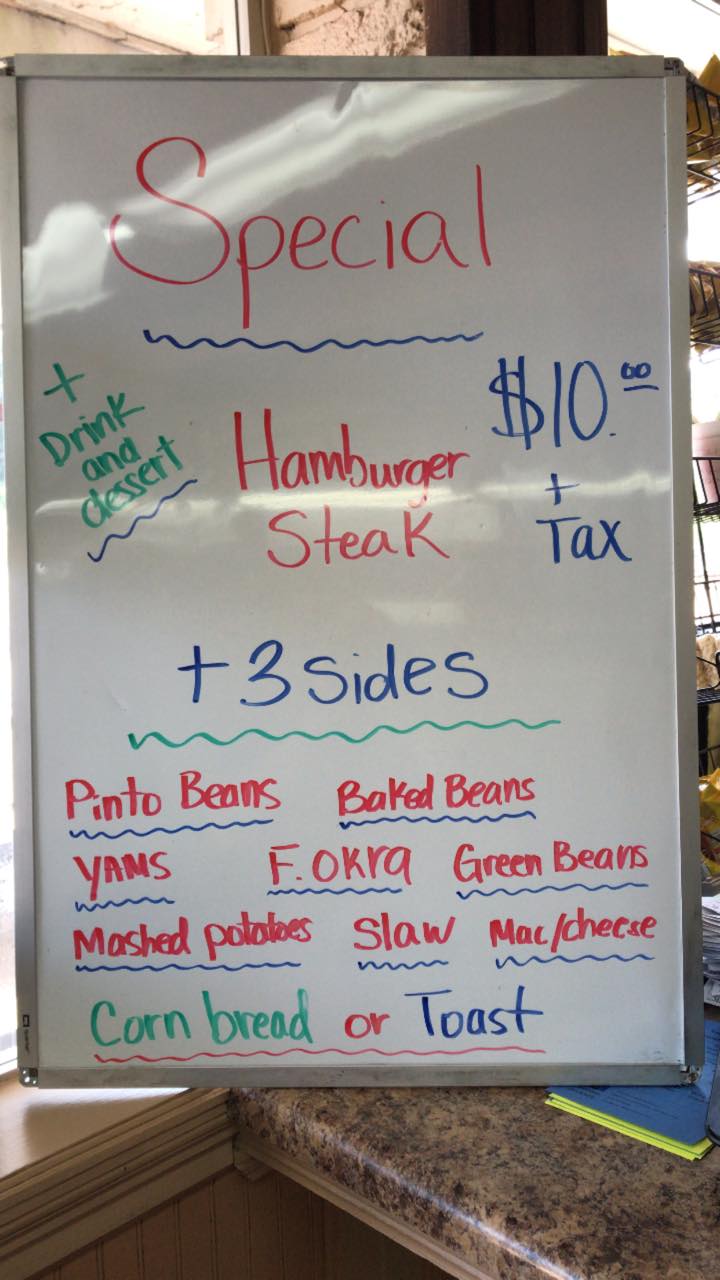 Special
+
Drink
and
dessert
Hamburger
Steak
$10.00
+
Tax
+3 sides
Pinto Beans Baked Beans
YAMS F. Okra Green Beans
Mashed potatoes Slaw Mac/cheese
Corn bread or Toast